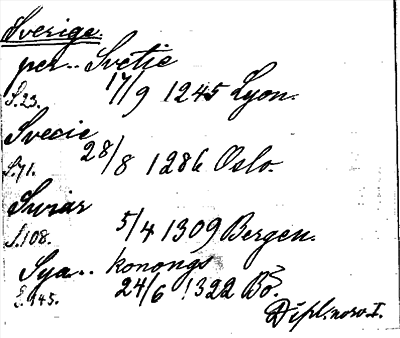 Sverige.
per.. Svetie
S.23. 17/9 1245 Lyon.
Svecie
S.71. 28/8 1286 Oslo.
Sviar
S.108. 5/4 1309 Bergen.
Sya.. konongs
S.145. 24/6 1322 Bo.
Dipl. norv. I.